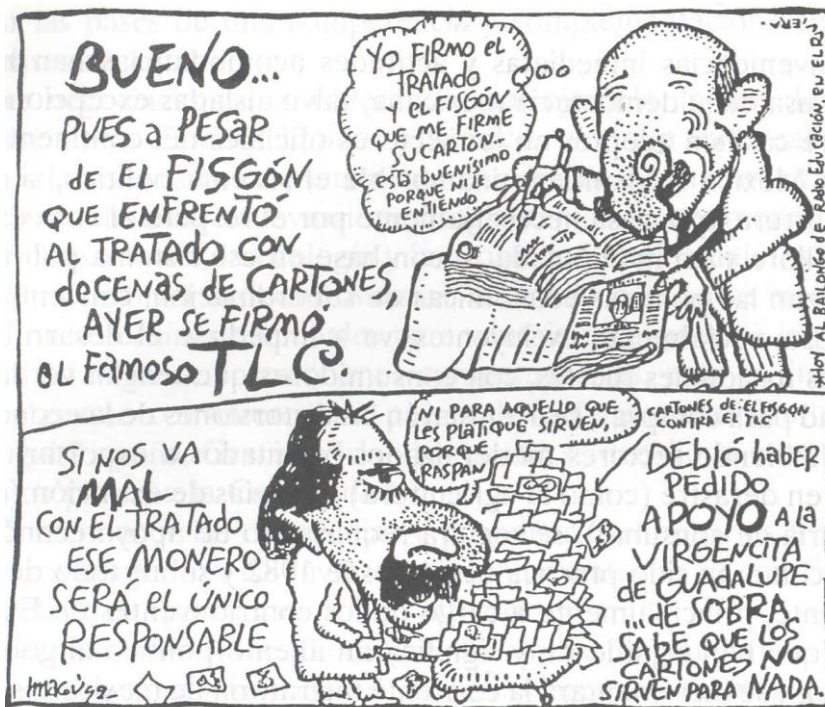 BUENO...
PUES A PESAR
DE EL FISGÓN
QUE ENFRENTÓ
AL TRATADO CON
DOCENAS DE CARTONES,
AYER SE FIRMÓ
EL FAMOSO TLC.
YO FIRMO EL
TRATADO
Y EL FISGÓN
QUE ME FIRME
SU CARTÓN.
ESTÁ BUENÍSIMO
PORQUE NI EN-
TIENDO
SI NOS VA
MAL
CON EL TRATADO
ESE MONERO
SERÁ EL ÚNICO
RESPONSABLE
NI PARA AQUELLO QUE
LES PLATIQUE SIRVEN,
PORQUE
RASPAN
CARTONES DE: EL FISGÓN
CONTRA EL TLC
DEBIÓ HABER
PEDIDO
APOYO A LA
VIRGENCITA
DE GUADALUPE
... DE SOBRA
SABE QUE LOS
CARTONES NO
SIRVEN PARA NADA.
Magú '92